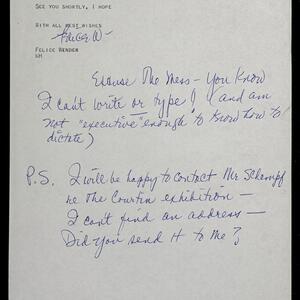 SEE YOU SHORTLY, I HOPE
WITH ALL BEST WISHES
Felice W-
FELICE WENDER
Excuse The mess - you Know
I can't write or type! (and am
not "executive" enough to know how to
dictate)
P.S. I will be happy to contact Mr Schempf
re The Courtin exhibition -
I can't find an address -
Did you send it to me?